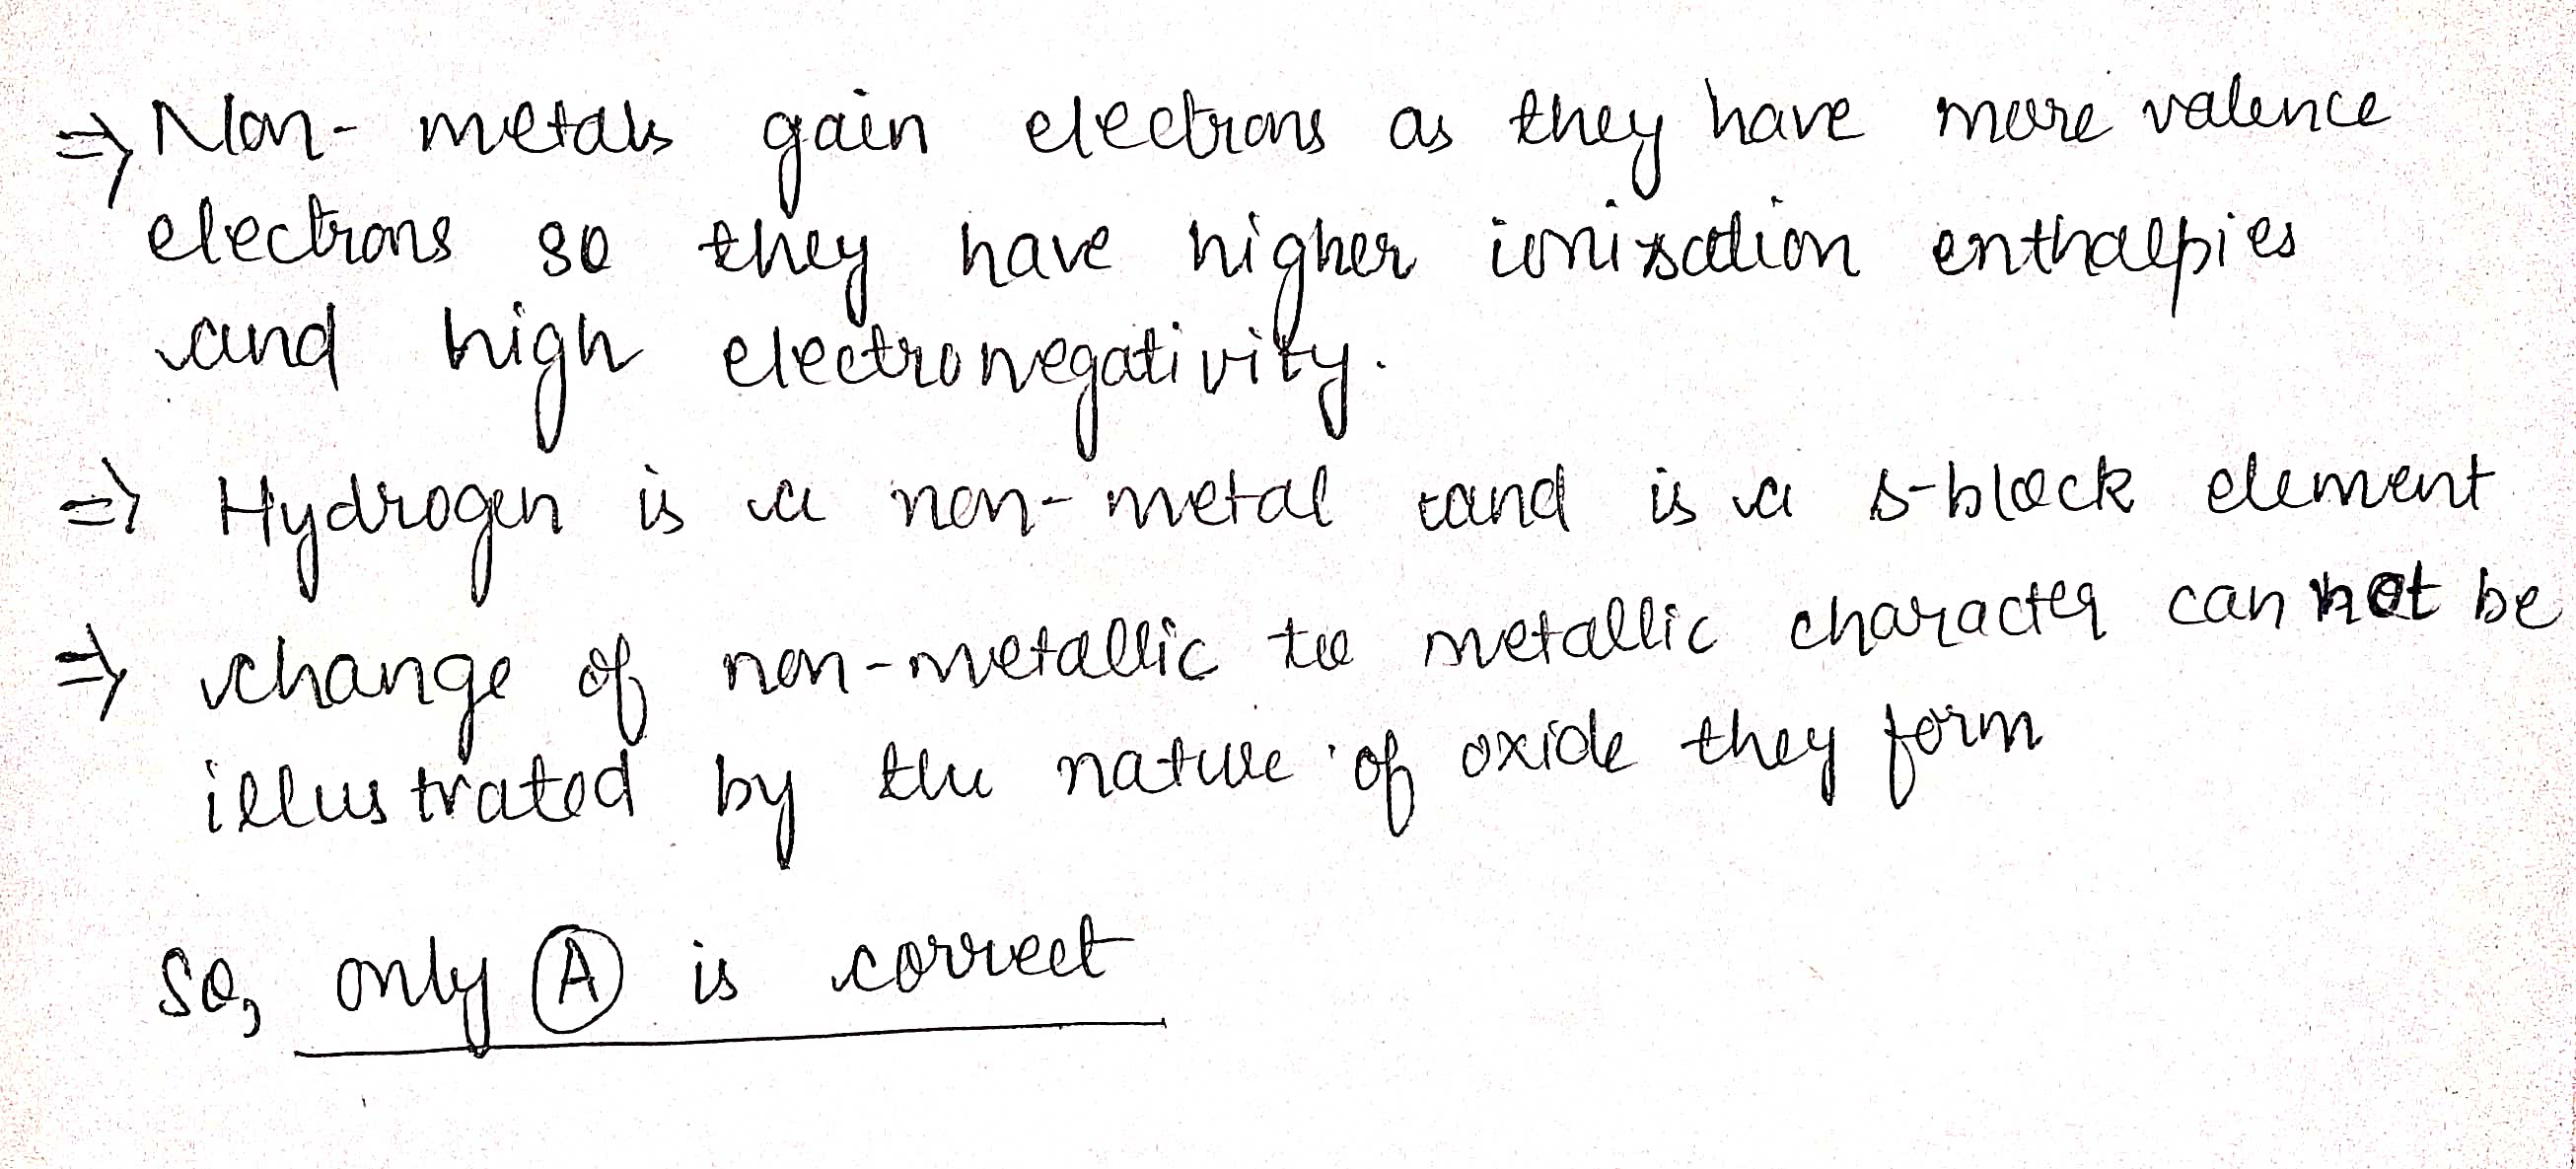 ⇒ Non-metals gain electrons as they have more valence
electrons so they have higher ionisation enthalpies
and high electronegativity.
⇒ Hydrogen is a non-metal and is a s-block element
⇒ change of non-metallic to metallic character can not be
illustrated by the nature of oxide they form
So, only Ⓐ is correct